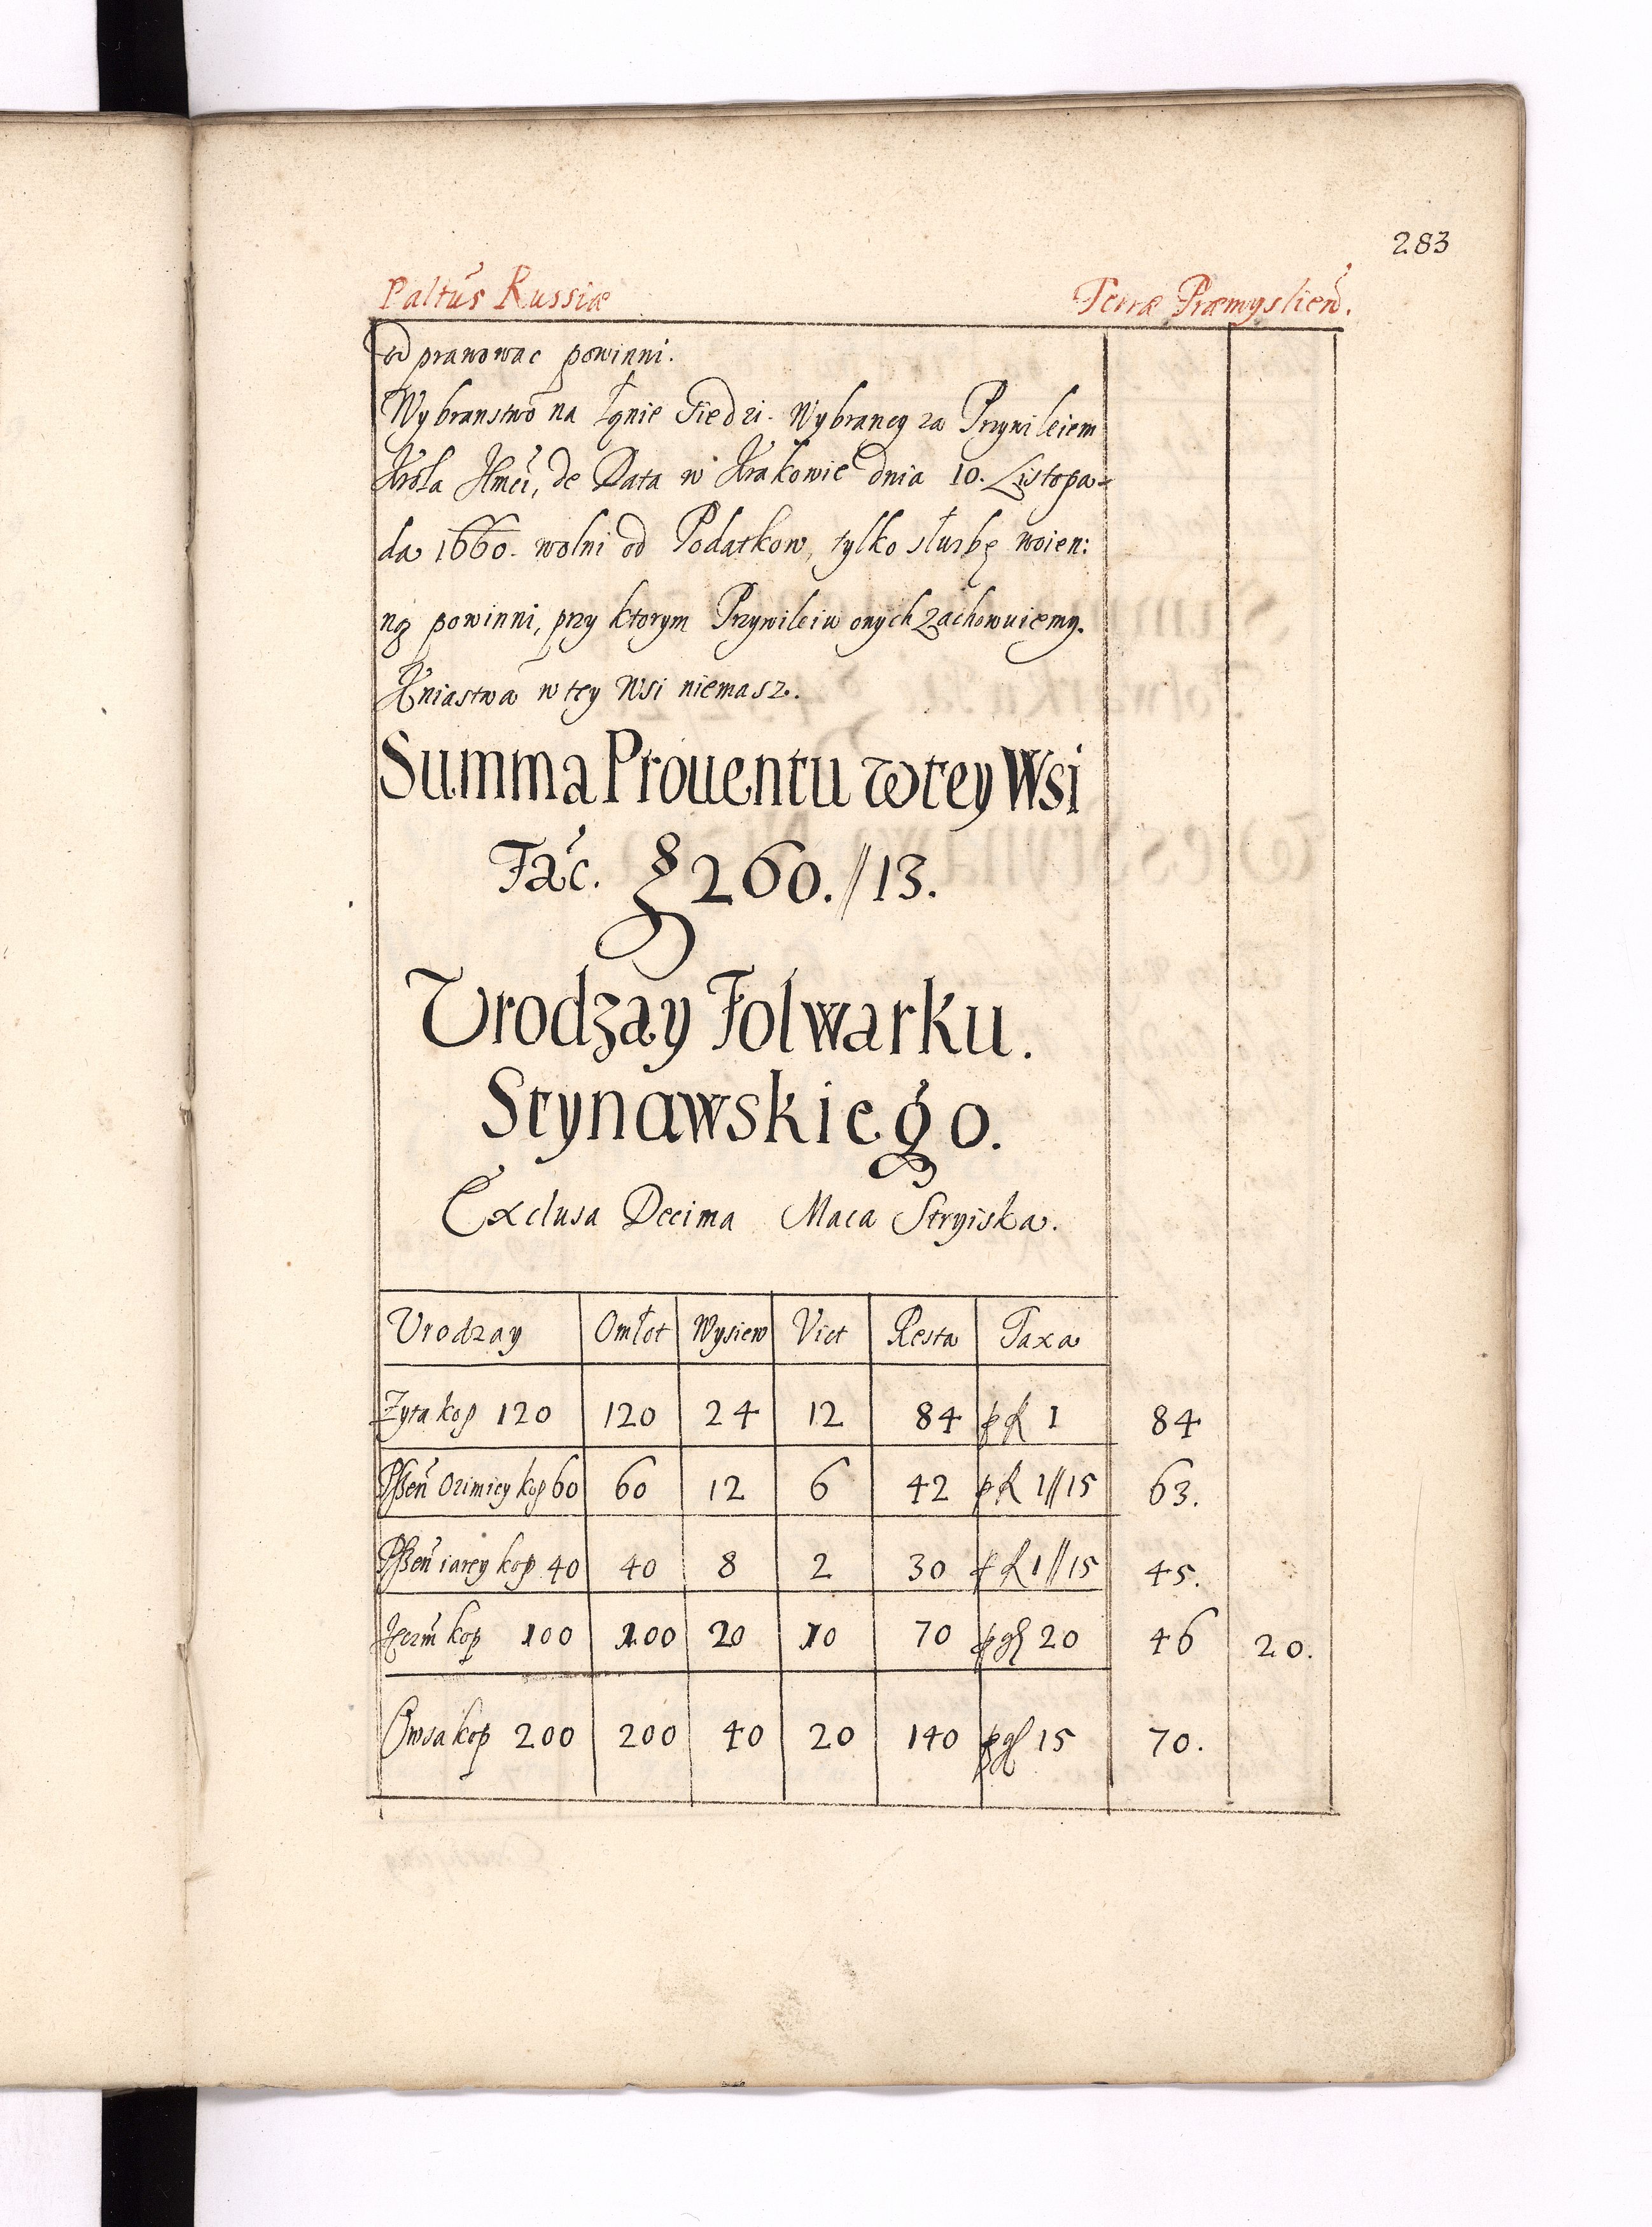 283
Paltus Russiæ Terræ Præmyslien.
odprawowac powinni.
Wybranstwo na Łąnie Siedzi. Wybrancy za Przywileiem
Krola Jmci, de Data w Krakowie dnia 10. Listopa=
da 1660. wolni od Podatkow, tylko służbę woien:
ną powinni, przy ktorym Przywileiu onych Zachowuiemy.
Kniastwa w tey Wsi niemasz.
Summa Prouentu w tey Wsi
Fac. 260.//13.
Vrodzay Folwarku.
Stynawskiego.
Exclusa Decima Maca Stryiska.
Vrodzay Omłot Wysiew Vict Resta Taxa
Zyta kop 120 120 24 12 84 p fl 1 84
Pszen Ozimiey kop 60 60 12 6 42 p fl 1//15 63.
Pszen iarey kop 40 40 8 2 30 p fl 1//15 45.
Jęczm kop 100 100 20 10 70 p gr 20 46 20.
Owsa kop 200 200 40 20 140 p gr 15 70.